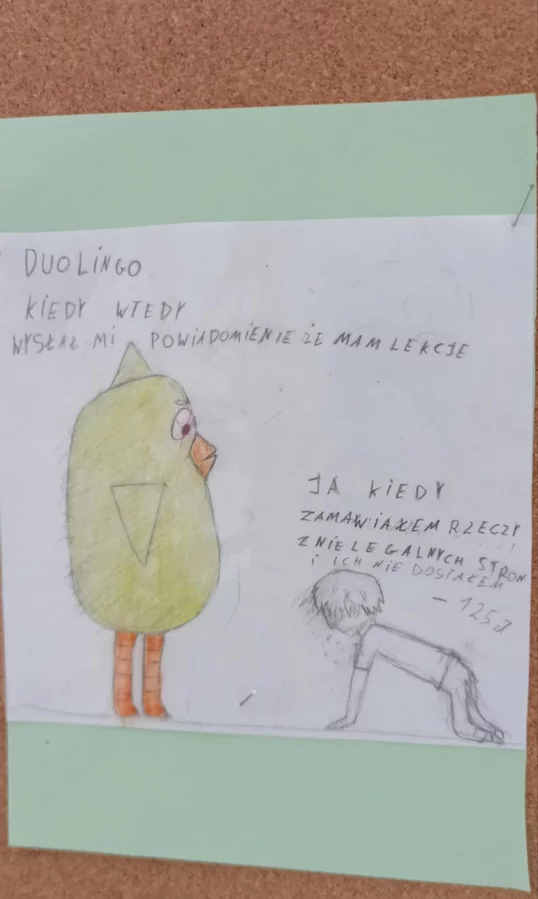 DUOLINGO
KIEDY WTEDY
WYSŁAŁ MI POWIADOMIENIE ŻE MAM LEKCJE
JA KIEDY
ZAMAWIAŁEM RZECZY
Z NIELEGALNYCH STRON
I ICH NIE DOSTAŁEM
- 125zł